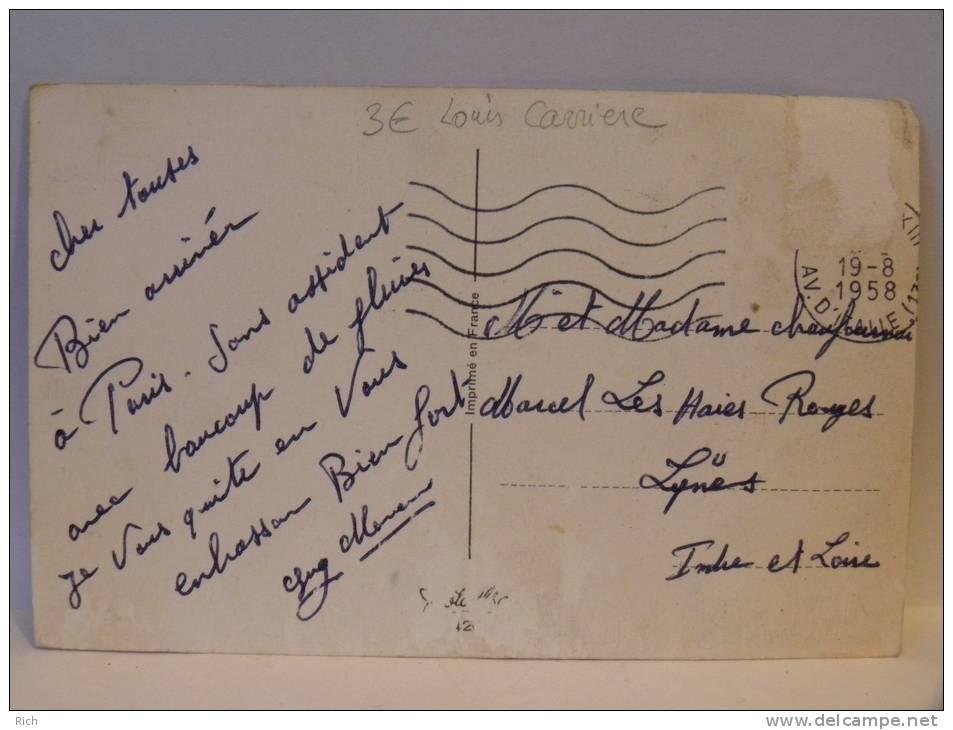 3€ Louis Carriere
cher toutes
Bien arrivér
à Paris - Sans assident
avec baucoup de pluies
je Vous quite en Vous
enbrassan Bien fort
19-8
1958
AV. D'
Imprimé en France
Mr et Madame
Marcel Les Haies Rouges
Lÿnes
Indre et Loire
12
Rich
www.delcampe.net